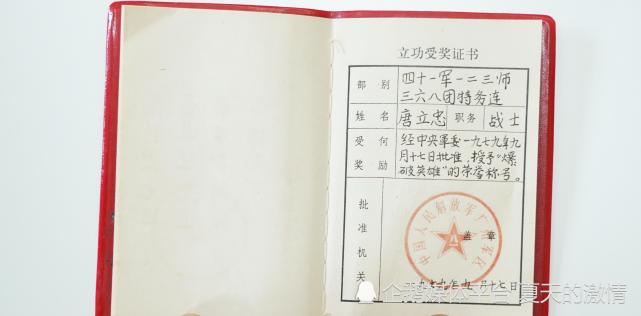 立功受奖证书
部别 四十一军一二三师
三六八团特务连
姓名 唐立忠 职务 战士
受何奖励 经中央军委一九七九年九
月十七日批准,授予"爆
破英雄"的荣誉称号。
批准机关
中国人民解放军广州军区
盖章
一九七九年九月十七日
企鹅媒体平台 夏天的激情